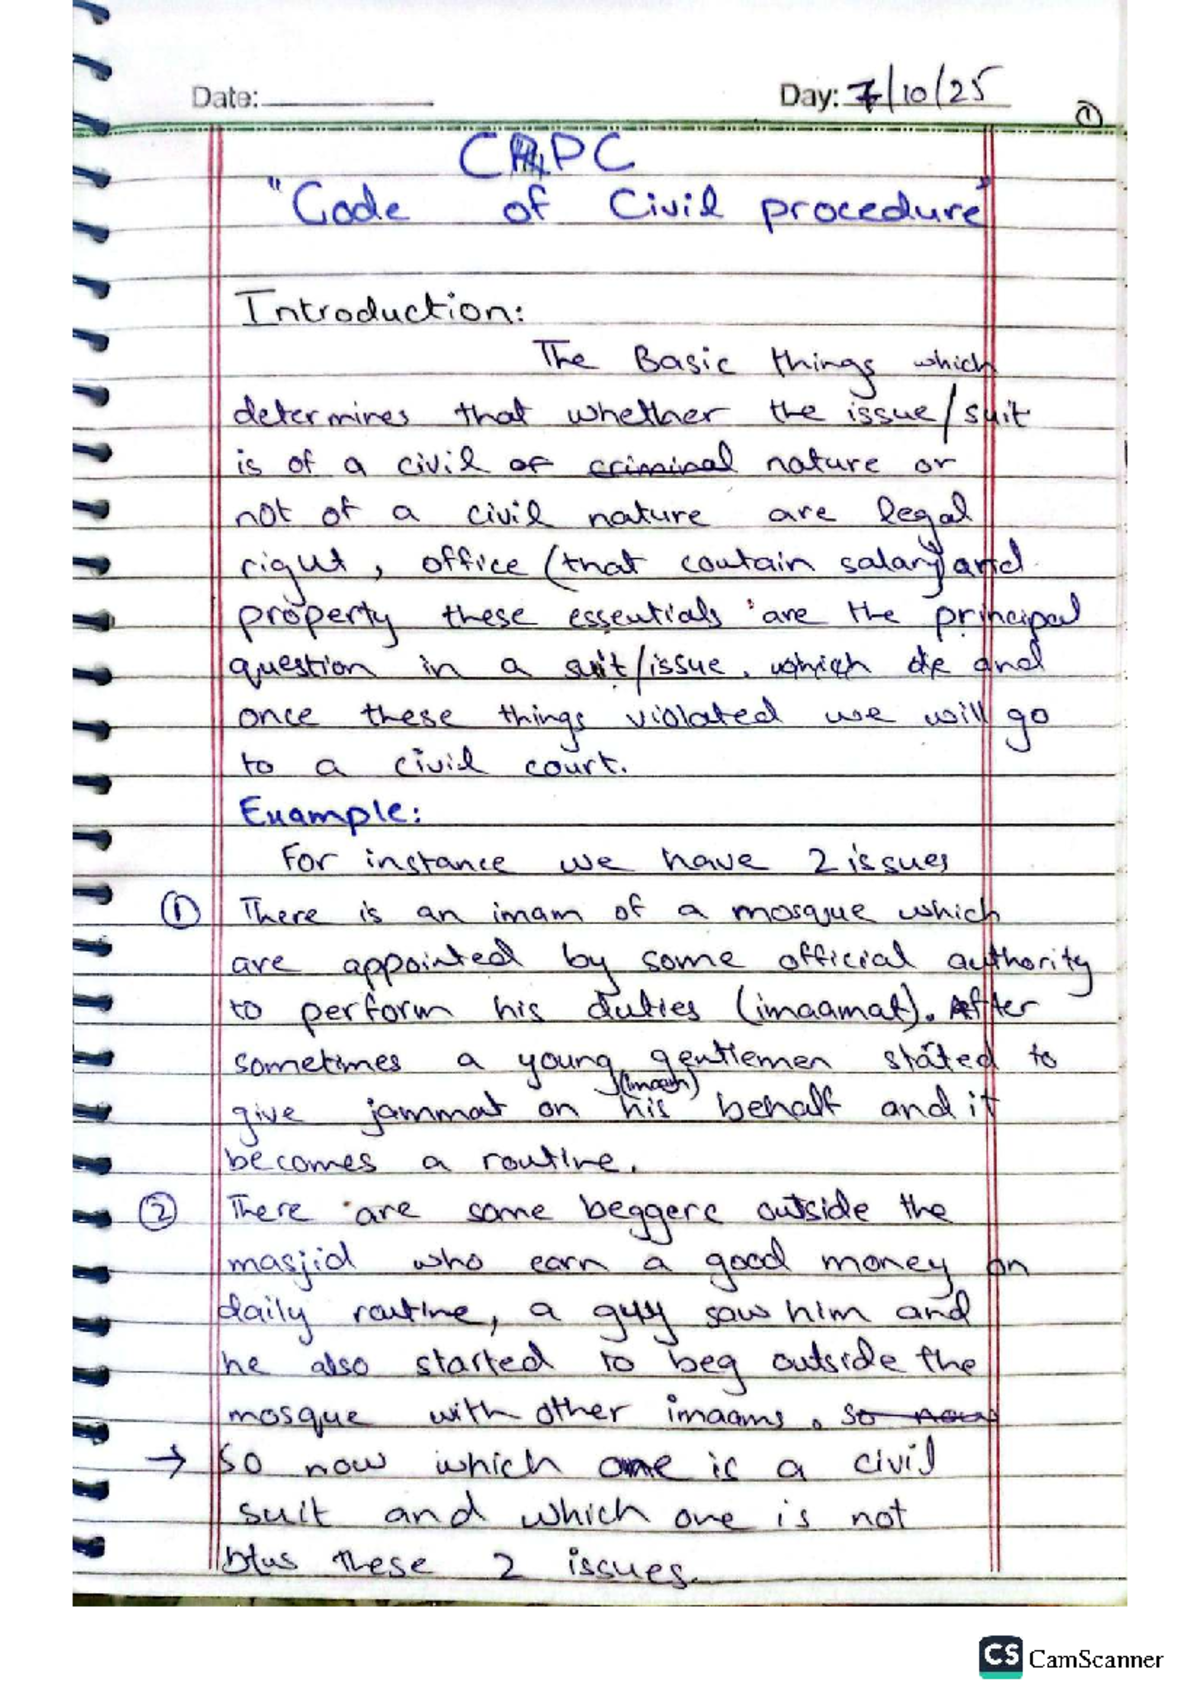 Date:
Day: 7/10/25
1
CPC
"Code of Civil procedure"
Introduction:
The Basic things which
determines that whether the issue/suit
is of a civil or criminal nature or
not of a civil nature are legal
right, office (that contain salary) and
property these essentials are the principal
question in a suit/issue. which de and
once these things violated we will go
to a civil court.
Example:
For instance we have 2 issues
1 There is an imam of a mosque which
are appointed by some official authority
to perform his duties (imaamat). After
sometimes a young gentlemen stated to
(imaam)
give jammat on his behalf and it
becomes a routine.
2 There are some beggere outside the
masjid who earn a good money on
daily routine, a guy saw him and
he also started to beg outside the
mosque with other imaams. so now
→ so now which one is a civil
suit and which one is not
btus these 2 issues.
CS CamScanner